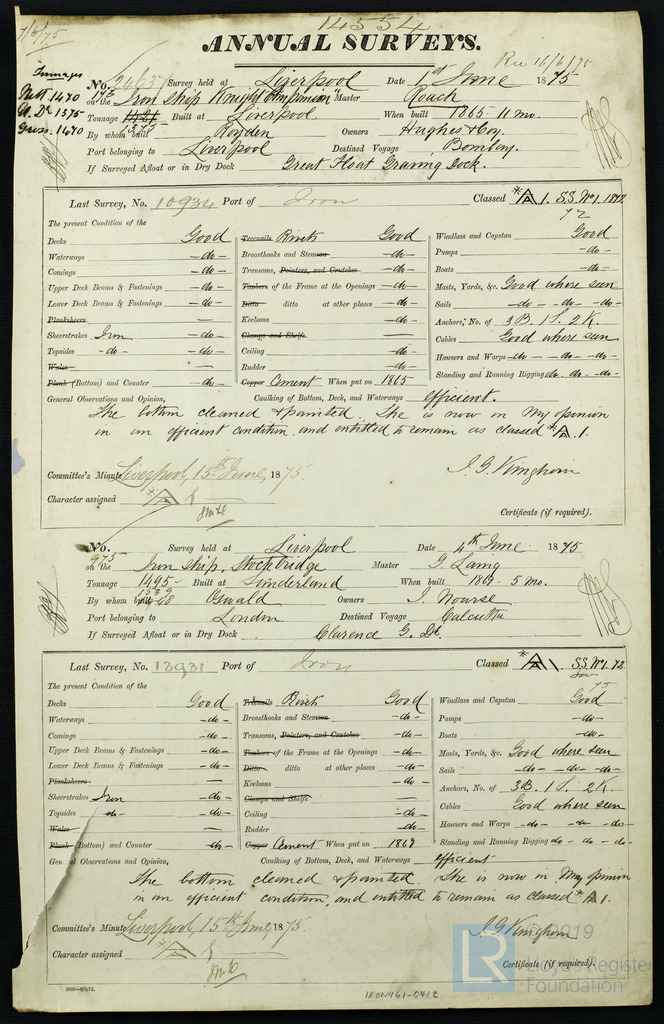 14554
ANNUAL SURVEYS.
Rec 16/6/75
Tonnage
Nett 1470
U. Dk 1375
Gross. 1470
No. 21637 Survey held at Liverpool Date 1st June 1875
on the Iron Ship "Knight Companion" Master Roach
Tonnage 1321 Built at Liverpool When built 1865 11 mo.
By whom built Royden Owners Hughes & Coy.
Port belonging to Liverpool Destined Voyage Bombay.
If Surveyed Afloat or in Dry Dock Great Float Graving Dock.
Last Survey, No. 10934 Port of Iron Classed *A 1. S.S. No 1. 1872
72
The present Condition of the
Decks Good Treenails Rivets Good Windlass and Capstan Good
Waterways -do- Breasthooks and Stemson -do- Pumps -do-
Comings -do- Transoms, Pointers, and Crutches -do- Boats -do-
Upper Deck Beams & Fastenings -do- Timbers of the Frame at the Openings -do- Masts, Yards, &c. Good where seen
Lower Deck Beams & Fastenings -do- Ditto ditto at other places -do- Sails -do- -do- -do-
Planksheers — Keelsons -do- Anchors, No. of 3 B. 1 S. 2 K.
Sheerstrakes Iron -do- Clamps and Shelfs — Cables Good where seen
Topsides -do- -do- Ceiling -do- Hawsers and Warps -do- -do- -do-
Wales — Rudder -do- Standing and Running Rigging do- do- do-
Plank (Bottom) and Counter -do- Copper Cement When put on 1865
General Observations and Opinion, Caulking of Bottom, Deck, and Waterways efficient.
The bottom cleaned & painted. She is now in my opinion
in an efficient condition and entitled to remain as classed *A. 1.
Committee's Minute Liverpool, 15th June, 1875.
J. G. Kinghorn
Character assigned *A 1
Certificate (if required).
No. Survey held at Liverpool Date 4th June 1875
975 on the Iron Ship, Stockbridge Master J. Laing
Tonnage 1495 Built at Sunderland When built 1869 - 5 mo.
By whom built Oswald Owners J. Nourse
Port belonging to London Destined Voyage Calcutta
If Surveyed Afloat or in Dry Dock Clarence G. Dk.
Last Survey, No. 13931 Port of Iron Classed *A 1. S.S. No 1. 72
The present Condition of the
Decks Good Treenails Rivets Good Windlass and Capstan Good
Waterways -do- Breasthooks and Stemson -do- Pumps -do-
Comings -do- Transoms, Pointers, and Crutches -do- Boats -do-
Upper Deck Beams & Fastenings -do- Timbers of the Frame at the Openings -do- Masts, Yards, &c. Good where seen
Lower Deck Beams & Fastenings -do- Ditto ditto at other places -do- Sails -do- -do- -do-
Planksheers — Keelsons -do- Anchors, No. of 3 B. 1 S. 2 K.
Sheerstrakes Iron -do- Clamps and Shelfs — Cables Good where seen
Topsides -do- -do- Ceiling -do- Hawsers and Warps -do- -do- -do-
Wales — Rudder -do- Standing and Running Rigging do- do- do-
Plank (Bottom) and Counter -do- Copper Cement When put on 1869
General Observations and Opinion, Caulking of Bottom, Deck, and Waterways efficient
The bottom cleaned & painted. She is now in my opinion
in an efficient condition, and entitled to remain as classed *A 1.
Committee's Minute Liverpool, 15th June, 1875.
J. G. Kinghorn
Character assigned *A 1
Certificate (if required).
LR ©2019
Lloyd's Register
Foundation
IRON461-0412